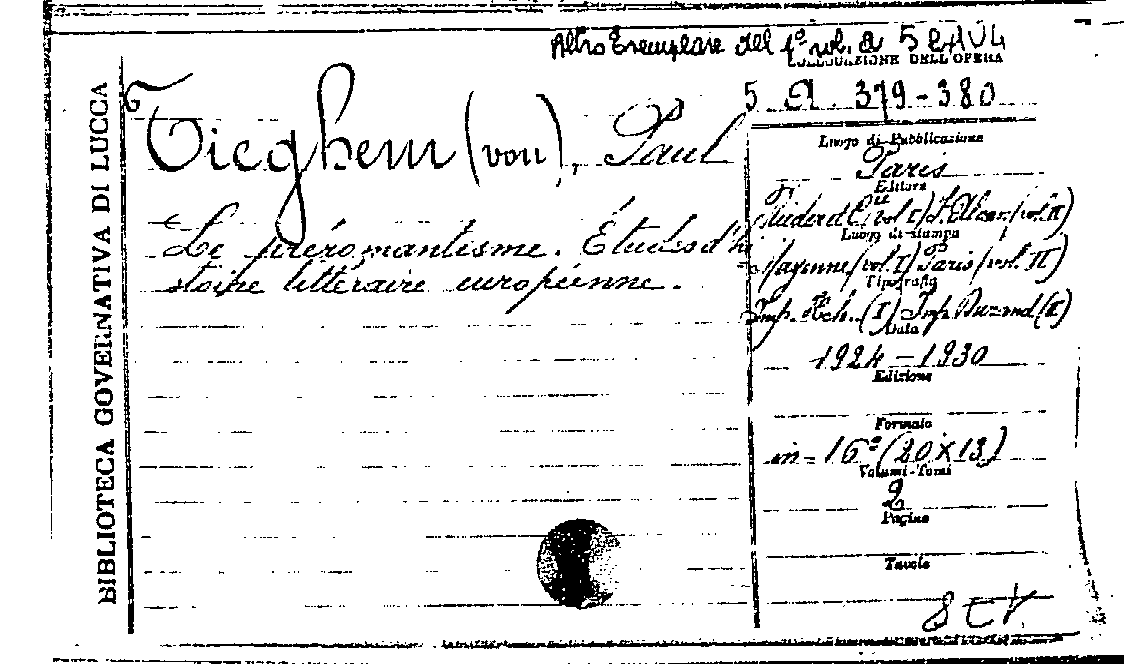 Altro Esemplare del 1º vol. a
COLLOCAZIONE DELL'OPERA
5 A. 379-380
BIBLIOTECA GOVERNATIVA DI LUCCA
Tieghem (von), Paul
Le préromantisme. Études d'hi
stoire littéraire européenne.
Luogo di Pubblicazione
Paris
Editore
(vol I) F. Alcan (vol. II)
Luogo di stampa
Mayenne (vol. I) Paris (vol. II)
Tipografia
Imp. (I) Imp. (II)
Data
1924-1930
Edizione
Formato
in-16º (20x13)
Volumi-Tomi
2
Pagine
Tavole